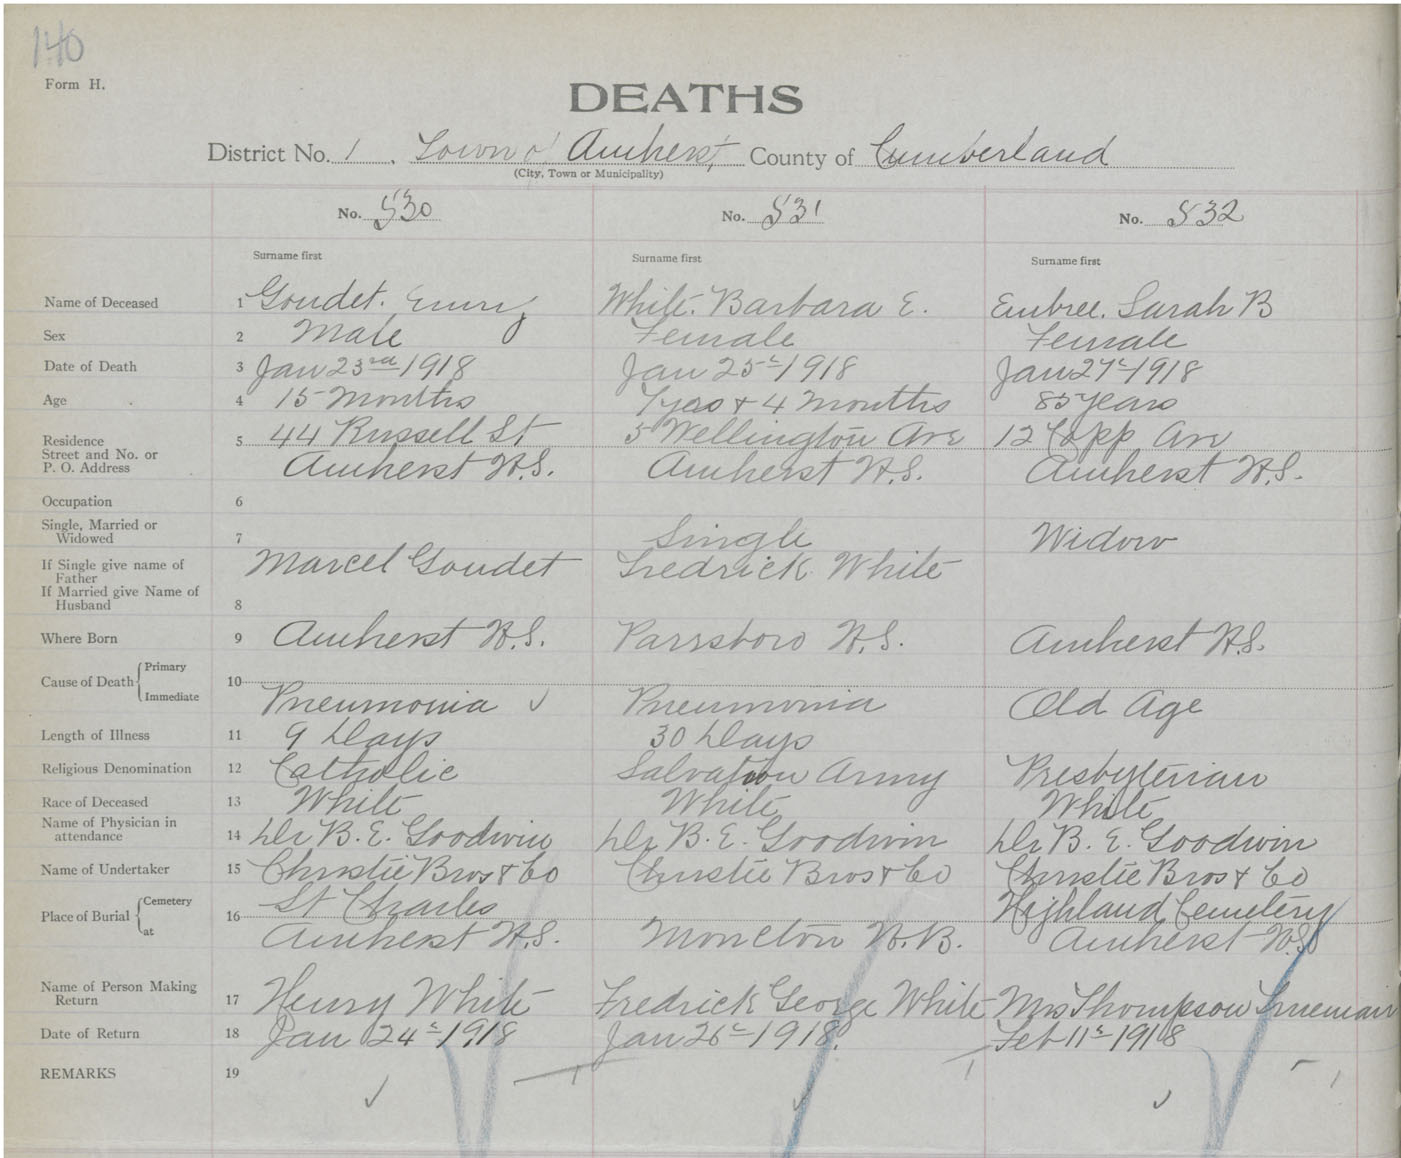 140
Form H.
DEATHS
District No. 1. Town of Amherst, County of Cumberland
(City, Town or Municipality)
No. 530 No. 531 No. 532
Surname first Surname first Surname first
Name of Deceased 1 Goudet. Emery White. Barbara E. Embree. Sarah B
Sex 2 Male Female Female
Date of Death 3 Jan 23rd 1918 Jan 25th 1918 Jan 27th 1918
Age 4 15 Months 7 yrs + 4 Months 85 years
Residence 5 44 Russell St 5 Wellington Ave 12 Copp Ave
Street and No. or
P. O. Address Amherst N.S. Amherst N.S. Amherst N.S.
Occupation 6
Single, Married or
Widowed 7 Single Widow
If Single give name of
Father Marcel Goudet Fredrick White
If Married give Name of
Husband 8
Where Born 9 Amherst N.S. Parrsboro N.S. Amherst N.S.
Cause of Death Primary
10
Immediate Pneumonia Pneumonia Old Age
Length of Illness 11 9 Days 30 Days
Religious Denomination 12 Catholic Salvation Army Presbyterian
Race of Deceased 13 White White White
Name of Physician in
attendance 14 Dr B. E. Goodwin Dr B. E. Goodwin Dr B. E. Goodwin
Name of Undertaker 15 Christie Bros & Co Christie Bros & Co Christie Bros & Co
Place of Burial Cemetery 16 St Charles Highland Cemetery
at Amherst N.S. Moncton N.B. Amherst N.S
Name of Person Making
Return 17 Henry White Fredrick George White Mrs Thompson Trueman
Date of Return 18 Jan 24th 1918 Jan 26th 1918. Feb 11th 1918
REMARKS 19